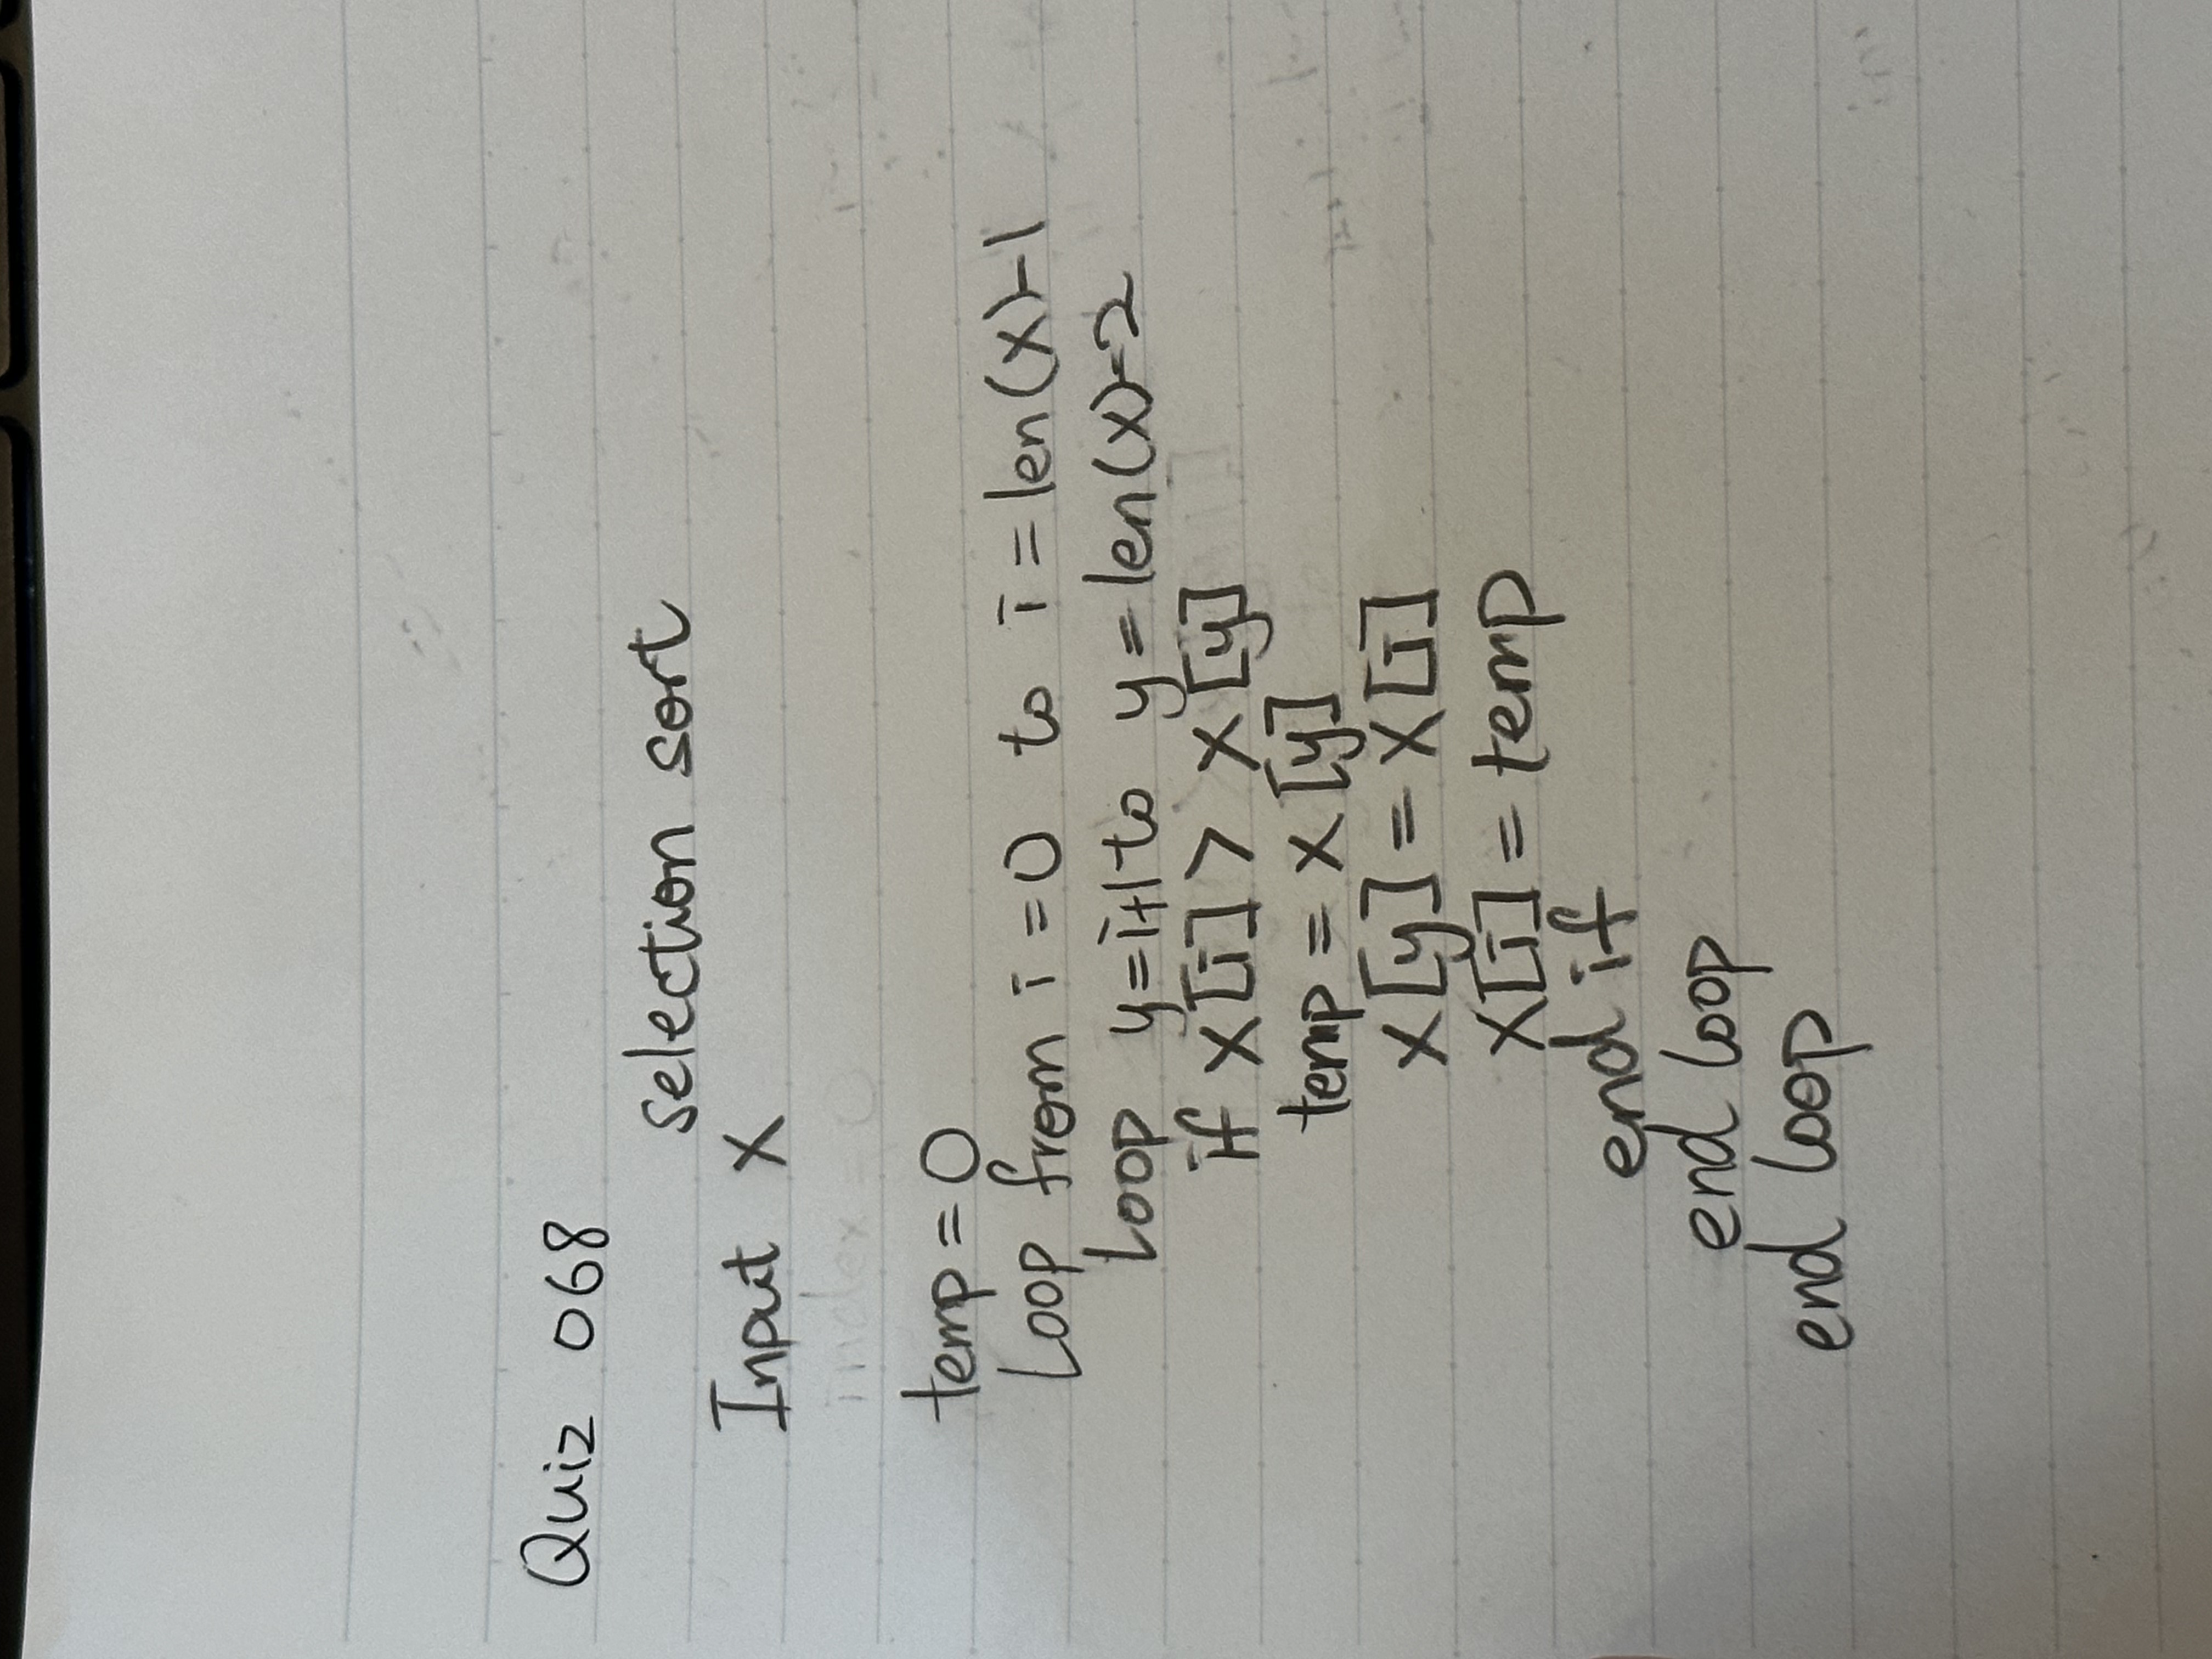 Quiz 068
selection sort
Input X
index = 0
temp = 0
Loop from i = 0 to i = len(X)-1
Loop y=i+1 to y = len(X)-2
if X[i] > X[y]
temp = X[y]
X[y] = X[i]
X[i] = temp
end if
end loop
end loop